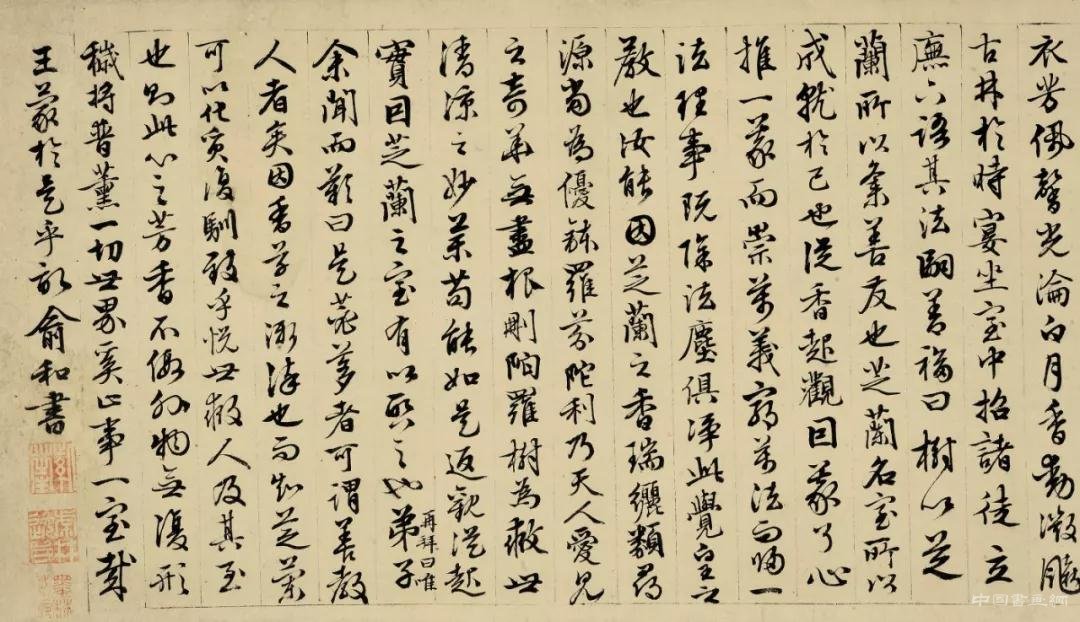 衣芳佩馨光淪白月香動微
古林於時宴坐室中招諸徒立
廡下語其法嗣善福曰樹以芝
蘭所以彙善友也芝蘭名室所以
成就於己也從香起觀因了心
推一而崇萬義窮萬法而歸一
法理事既除法塵俱淨此覺皇之
教也汝能因芝蘭之香瑞纚類
源當為優鉢羅芬陀利乃天人愛見
之奇華無盡根剛陀羅樹為救世
清涼之妙藥苟能如是返觀從起
實因芝蘭之室有以啟之也弟子再拜曰唯
余聞而歎曰是苾蒭者可謂善教
人者矣因香草之漸也而知芝蘭
可以代復馴致乎悅世救人及其至
也則此心之芳香不假外物無復形
穢將普薰一切世界奚止事一室哉
王蒙於是乎記俞和書
中國書畫網